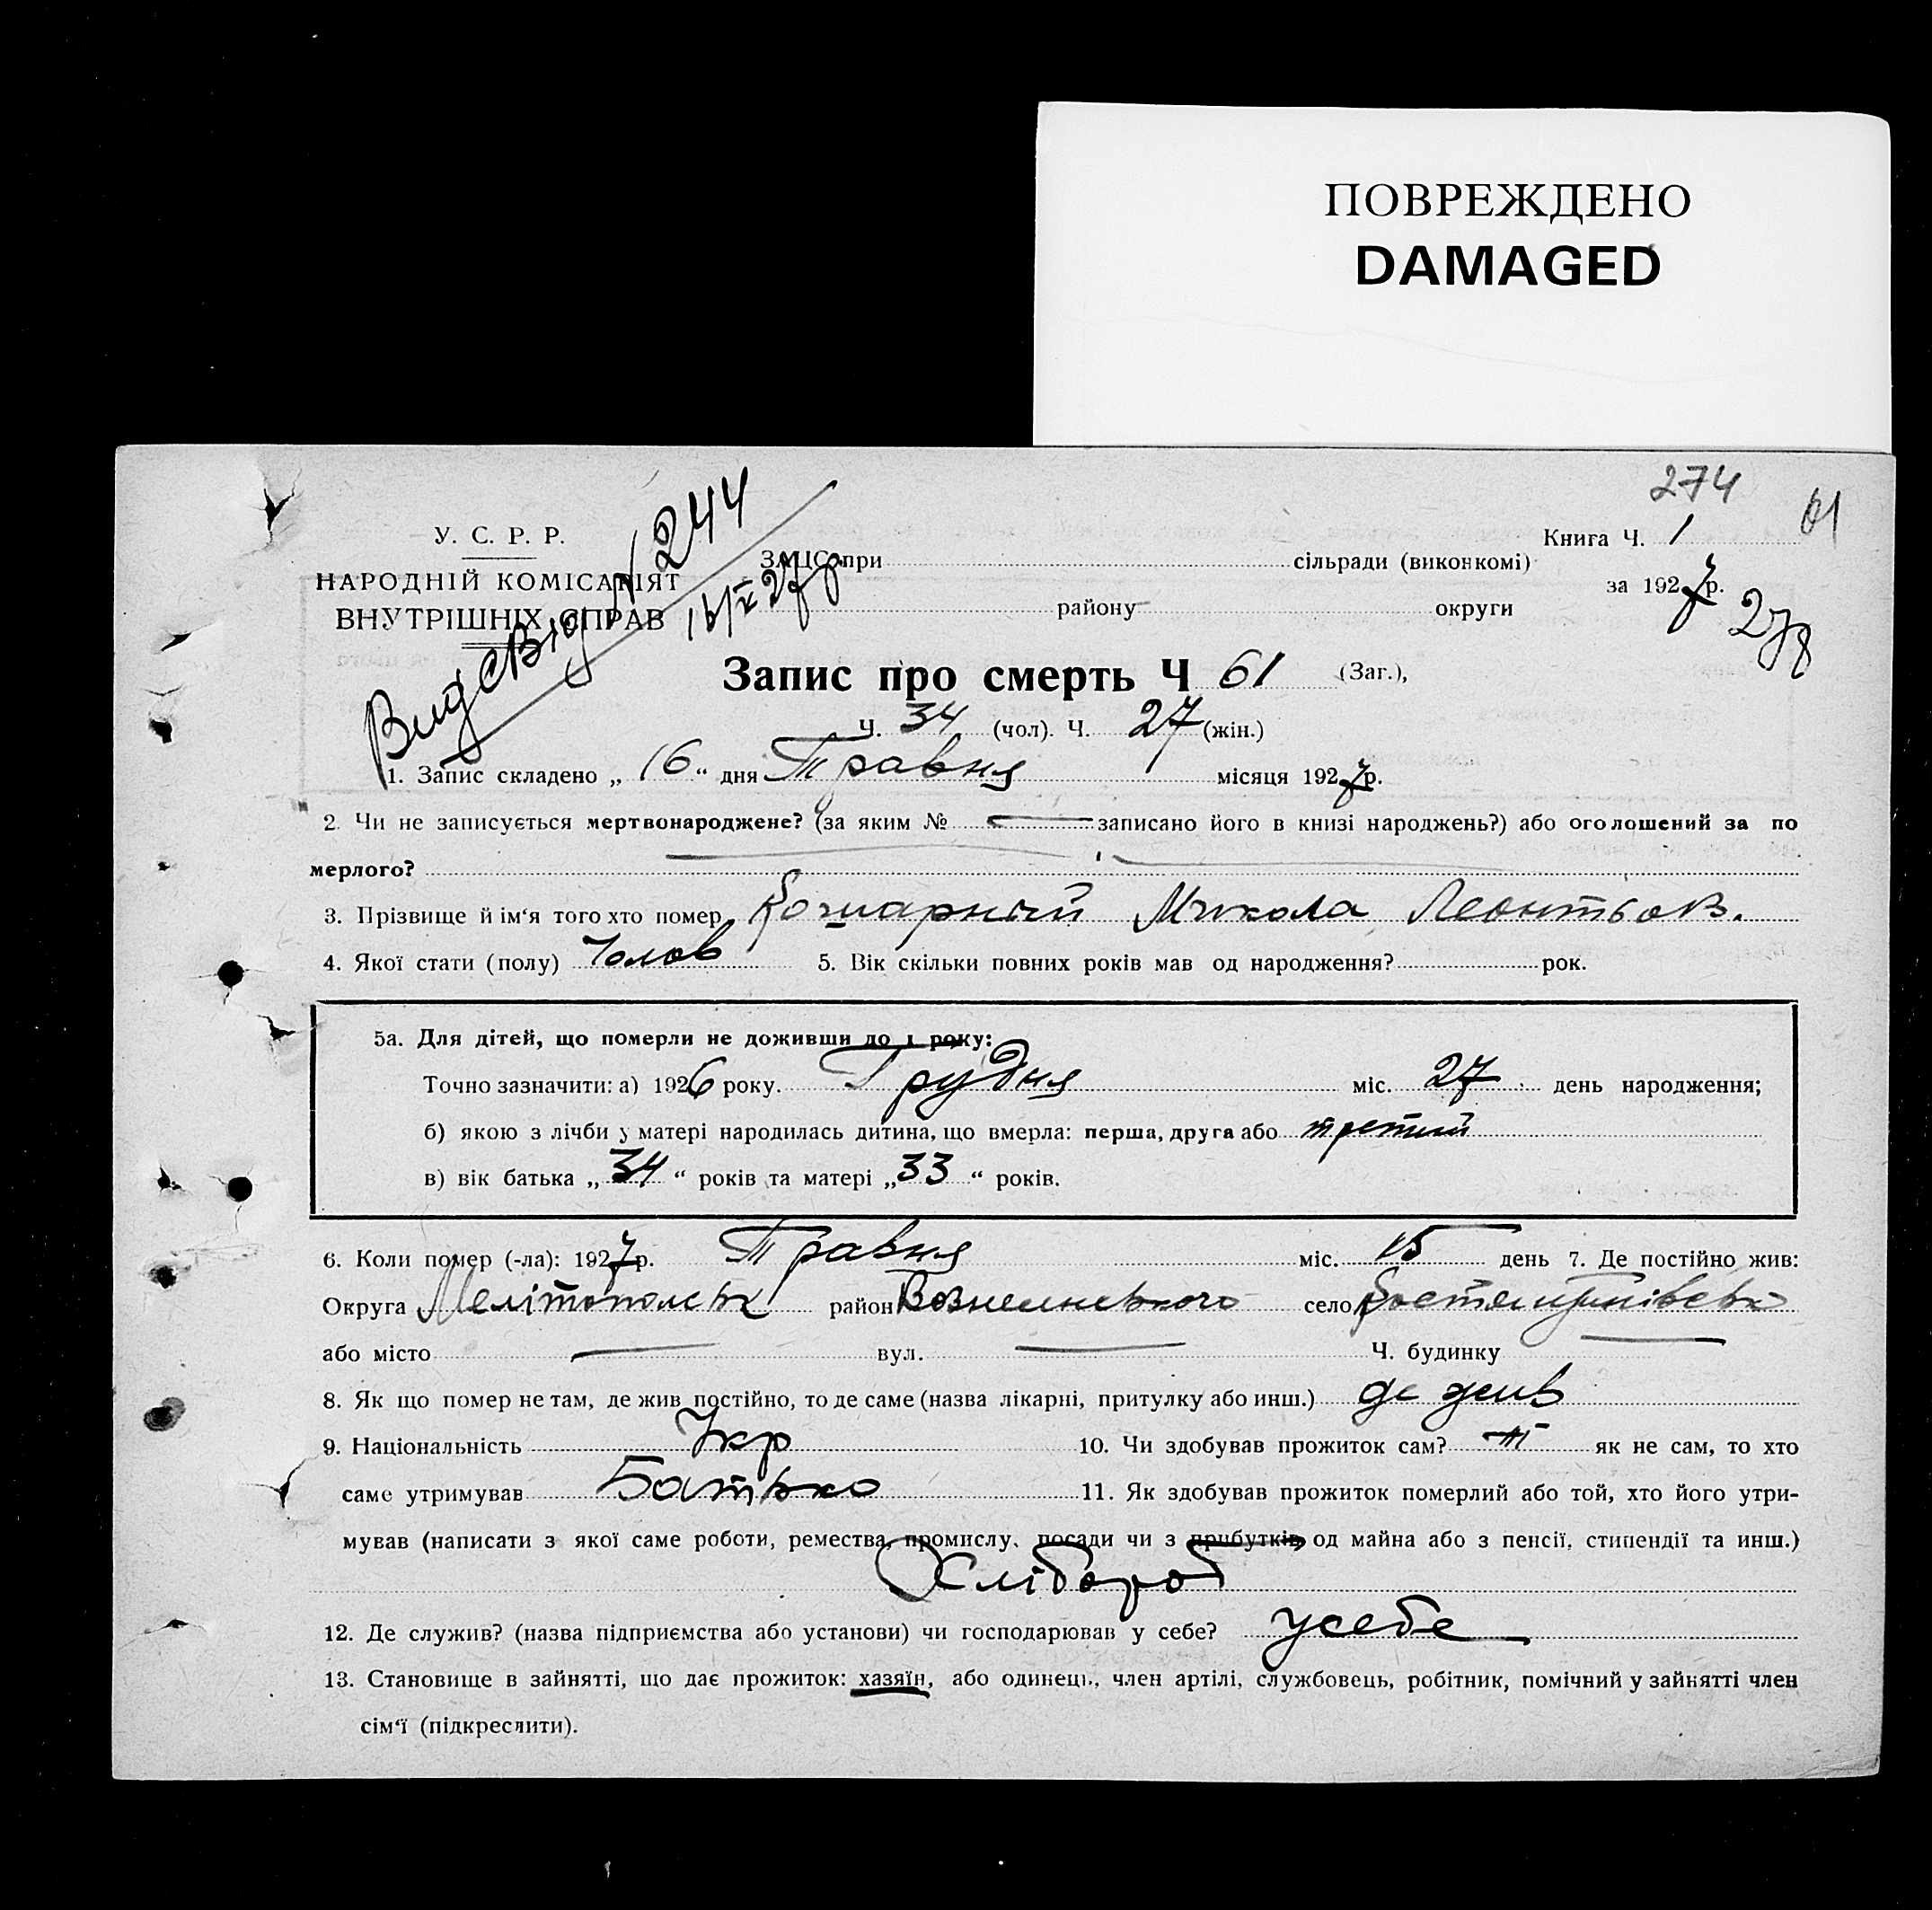 ПОВРЕЖДЕНО
DAMAGED
274
61
У. С. Р. Р.
НАРОДНІЙ КОМІСАРІЯТ
ВНУТРІШНІХ СПРАВ
244
ЗАЦС при сільради (виконкомі)
району округи
Книга Ч. 1
за 1927 р.
278
Запис про смерть Ч 61 (Заг.),
Ч. 34 (чол). Ч. 27 (жін.)
1. Запис складено „ 16 “ дня Травня місяця 1927 р.
2. Чи не записується мертвонароджене? (за яким № записано його в книзі народжень?) або оголошений за по
мерлого?
3. Прізвище й ім‘я того хто помер Кошарний Микола Леонтьов.
4. Якої стати (полу) Чолов 5. Вік скільки повних років мав од народження? рок.
5а. Для дітей, що померли не доживши до 1 року:
Точно зазначити: а) 1926 року. Грудня міс. 27 день народження;
б) якою з лічби у матері народилась дитина, що вмерла: перша, друга або третий
в) вік батька „ 34 “ років та матері „ 33 “ років.
6. Коли помер (-ла): 1927 р. Травня міс. 15 день 7. Де постійно жив:
Округа Мелітопольськ район Вознесенського село
або місто вул. Ч. будинку
8. Як що помер не там, де жив постійно, то де саме (назва лікарні, притулку або инш.) де жив
9. Національність Укр 10. Чи здобував прожиток сам? як не сам, то хто
саме утримував Батько 11. Як здобував прожиток померлий або той, хто його утри-
мував (написати з якої саме роботи, ремества, промислу, посади чи з прибутків од майна або з пенсії, стипендії та инш.)
Хлібороб
12. Де служив? (назва підприємства або установи) чи господарював у себе? усебе
13. Становище в зайнятті, що дає прожиток: хазяїн, або одинець, член артілі, службовець, робітник, помічний у зайнятті член
сім‘ї (підкреслити).